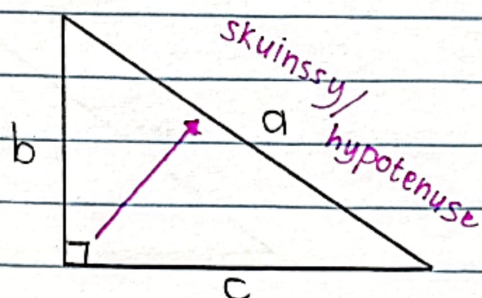 skuinssy/
hypotenuse
a
b
c